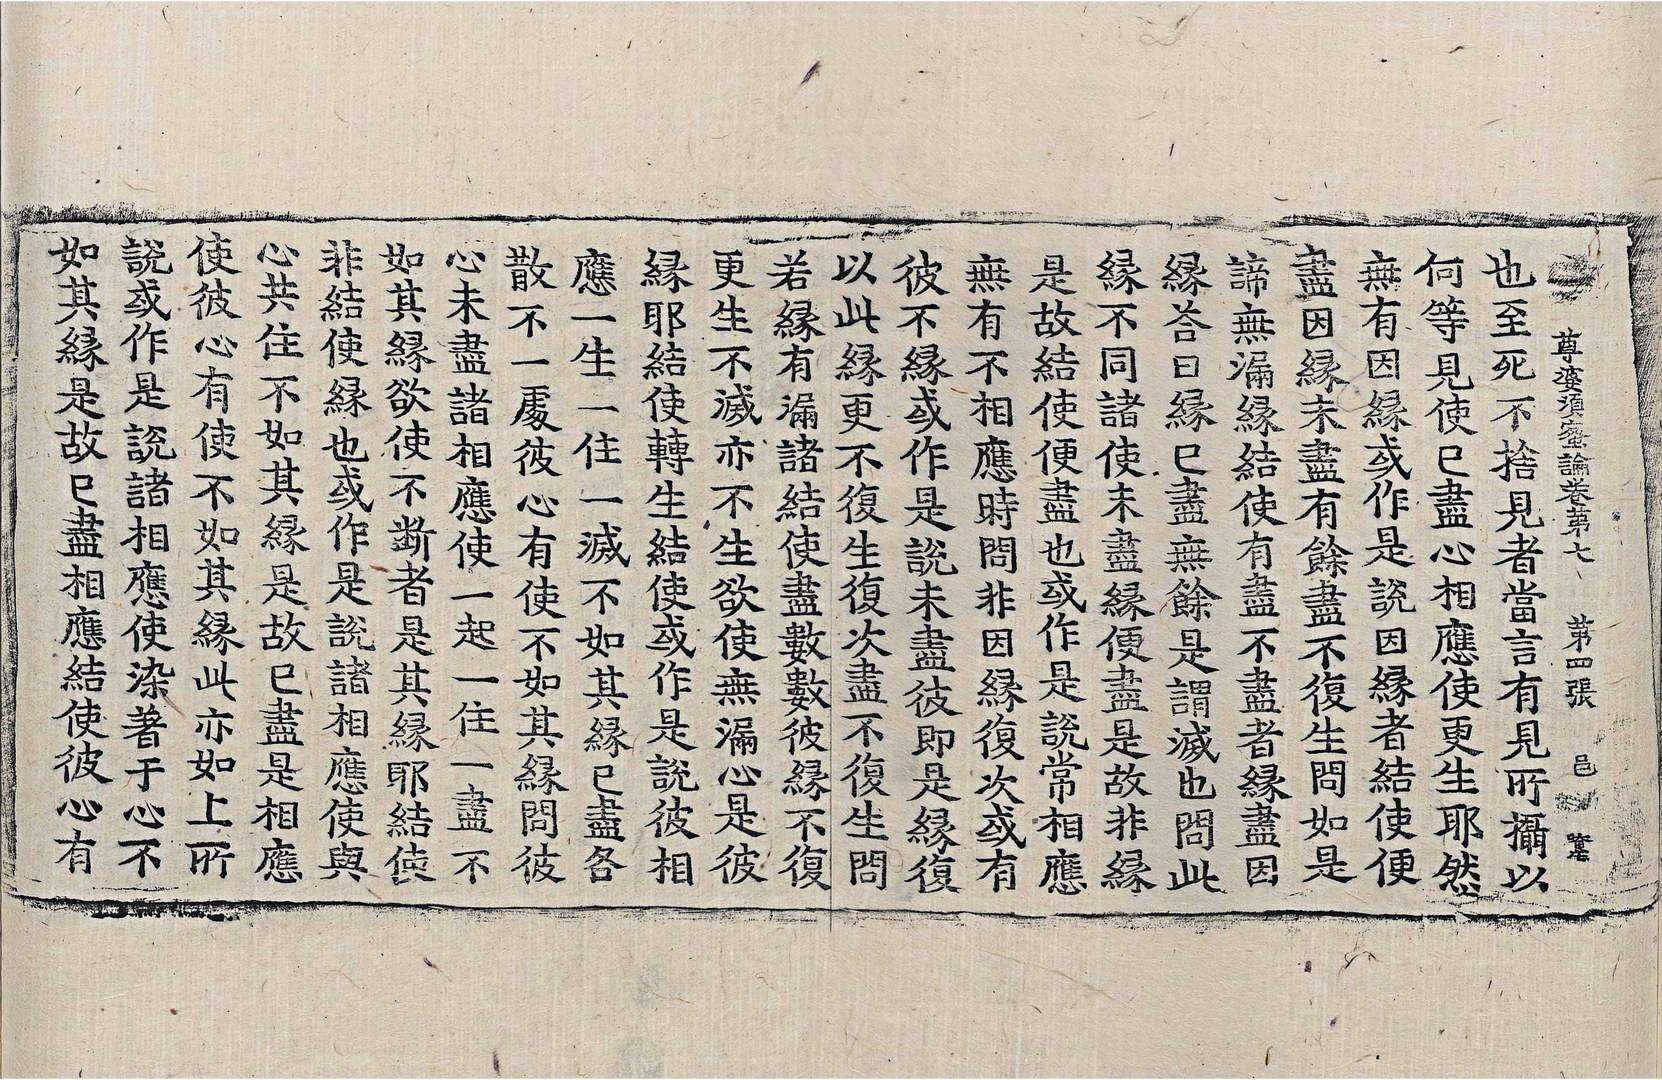 尊婆須蜜論卷第七 第四張 邑
也至死不捨見者當言有見所攝以
何等見使已盡心相應使更生耶然
無有因緣或作是說因緣者結使便
盡因緣未盡有餘盡不復生問如是
諦無漏緣結使有盡不盡者緣盡因
緣荅曰緣已盡無餘是謂滅也問此
緣不同諸使未盡緣便盡是故非緣
是故結使便盡也或作是說常相應
無有不相應時問非因緣復次或有
彼不緣或作是說未盡彼即是緣復
以此緣更不復生復次盡不復生問
若緣有漏諸結使盡數數彼緣不復
更生不滅亦不生欲使無漏心是彼
緣耶結使轉生結使或作是說彼相
應一生一住一滅不如其緣已盡各
散不一處彼心有使不如其緣問彼
心未盡諸相應使一起一住一盡不
如其緣欲使不斷者是其緣耶結使
非結使緣也或作是說諸相應使與
心共住不如其緣是故已盡是相應
使彼心有使不如其緣此亦如上所
說或作是說諸相應使染著于心不
如其緣是故已盡相應結使彼心有